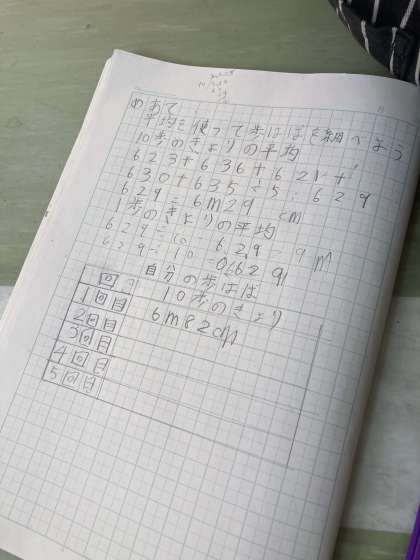 めあて
平均を使って歩はばを調べよう
10歩のきょりの平均
623+636+621+
630+635÷5=629
629=6m29cm
1歩のきょりの平均
629÷10=62.9
629÷10=0.629m
自分の歩はば
回 10歩のきょり
1回目 6m82cm
2回目
3回目
4回目
5回目